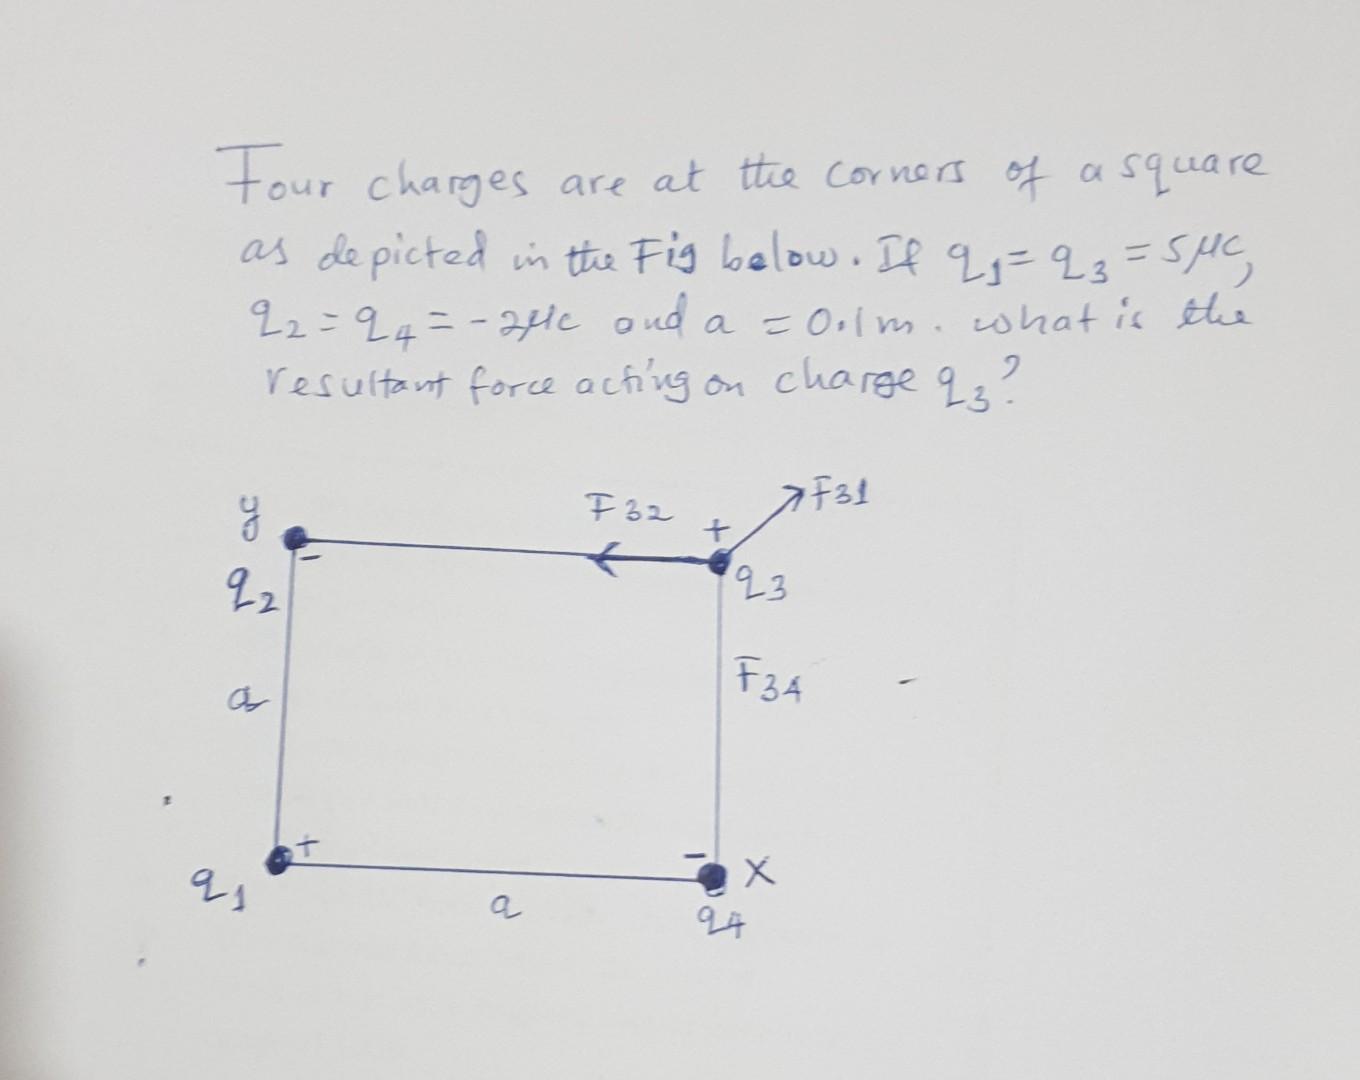 Four charges are at the corners of a square
as depicted in the Fig below. If q₁ = q₃ = 5μC,
q₂ = q₄ = -2μc and a = 0.1m. what is the
resultant force acting on charge q₃?
y
F32
+
F31
-
q₂
q₃
a
F34
-
q₁
+
a
-
X
q4